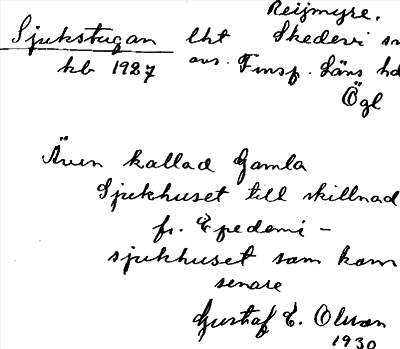 Reijmyre.
Sjukstugan lht Skedevi sn
kb 1927 avs. Finsp. läns hd
Ögl
Även kallad Gamla
Sjukhuset till skillnad
fr. Epedemi-
sjukhuset som kom
senare
Gustaf E. Olsson
1930